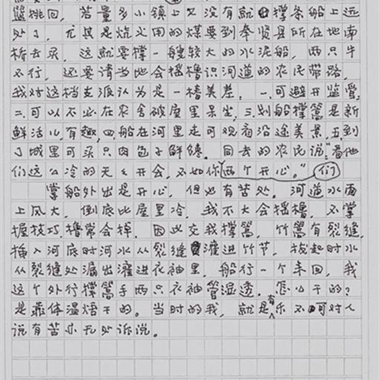 监挑回。若量多小镇上又没有就撑条船上远
处了，尤其是烧文用的煤要到奉贤县所在地南
桥去买，这就要撑一艘较大的水泥船，两只牛
不行，还要请当地会撑橹识河道的农民带路。
我对这档支派认为是一椿美差。一可避开监管
二可以不必在农舍破屋里呆坐，三划船撑篙是新
鲜活儿有趣四船在河里走可观看沿途美景，五到
了城里可买只肉包子解馋。同去的农民说：看他
们这么冷的天气开会，不如你两个开心。”们
掌船外出是开心，但也有苦处。河道水面
上风大，倒底比屋里冷。我不大会撑橹，不掌
握技巧橹常会掉。因此交我撑篙，竹篙有裂缝
插入河底时河水从裂缝灌进竹节，拔起时水
从裂缝处漏出灌进衣袖里，船行一个来回，我
这个外行撑篙手两只衣袖管湿透。怎么干的？
是靠体温焐干的。当时的我，就是有乐不可对人
说有苦亦无处诉说。